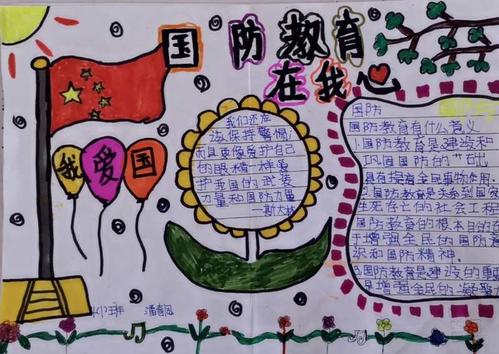 国防教育
在我心
我爱国
我们还应
该保持警惕，
而且要像爱护自己
的眼精一样爱
护我国的武装
力量和国防力量
—斯大林
国防
国防教育有什么意义
1国防教育是建设和
巩固国防的
具有提高全民
国防教育是关系到国
社会工程
国防教育的根本目的在
于增强全民的国防意
识和国防精神.
3国防教育是建设的重
是增强全民的凝聚力